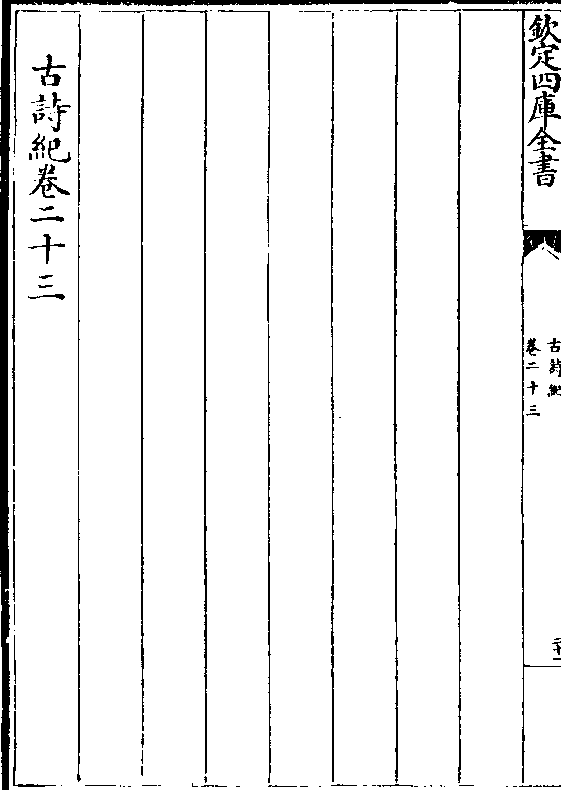 欽定四庫全書
古詩紀
卷二十三
古詩紀卷二十三